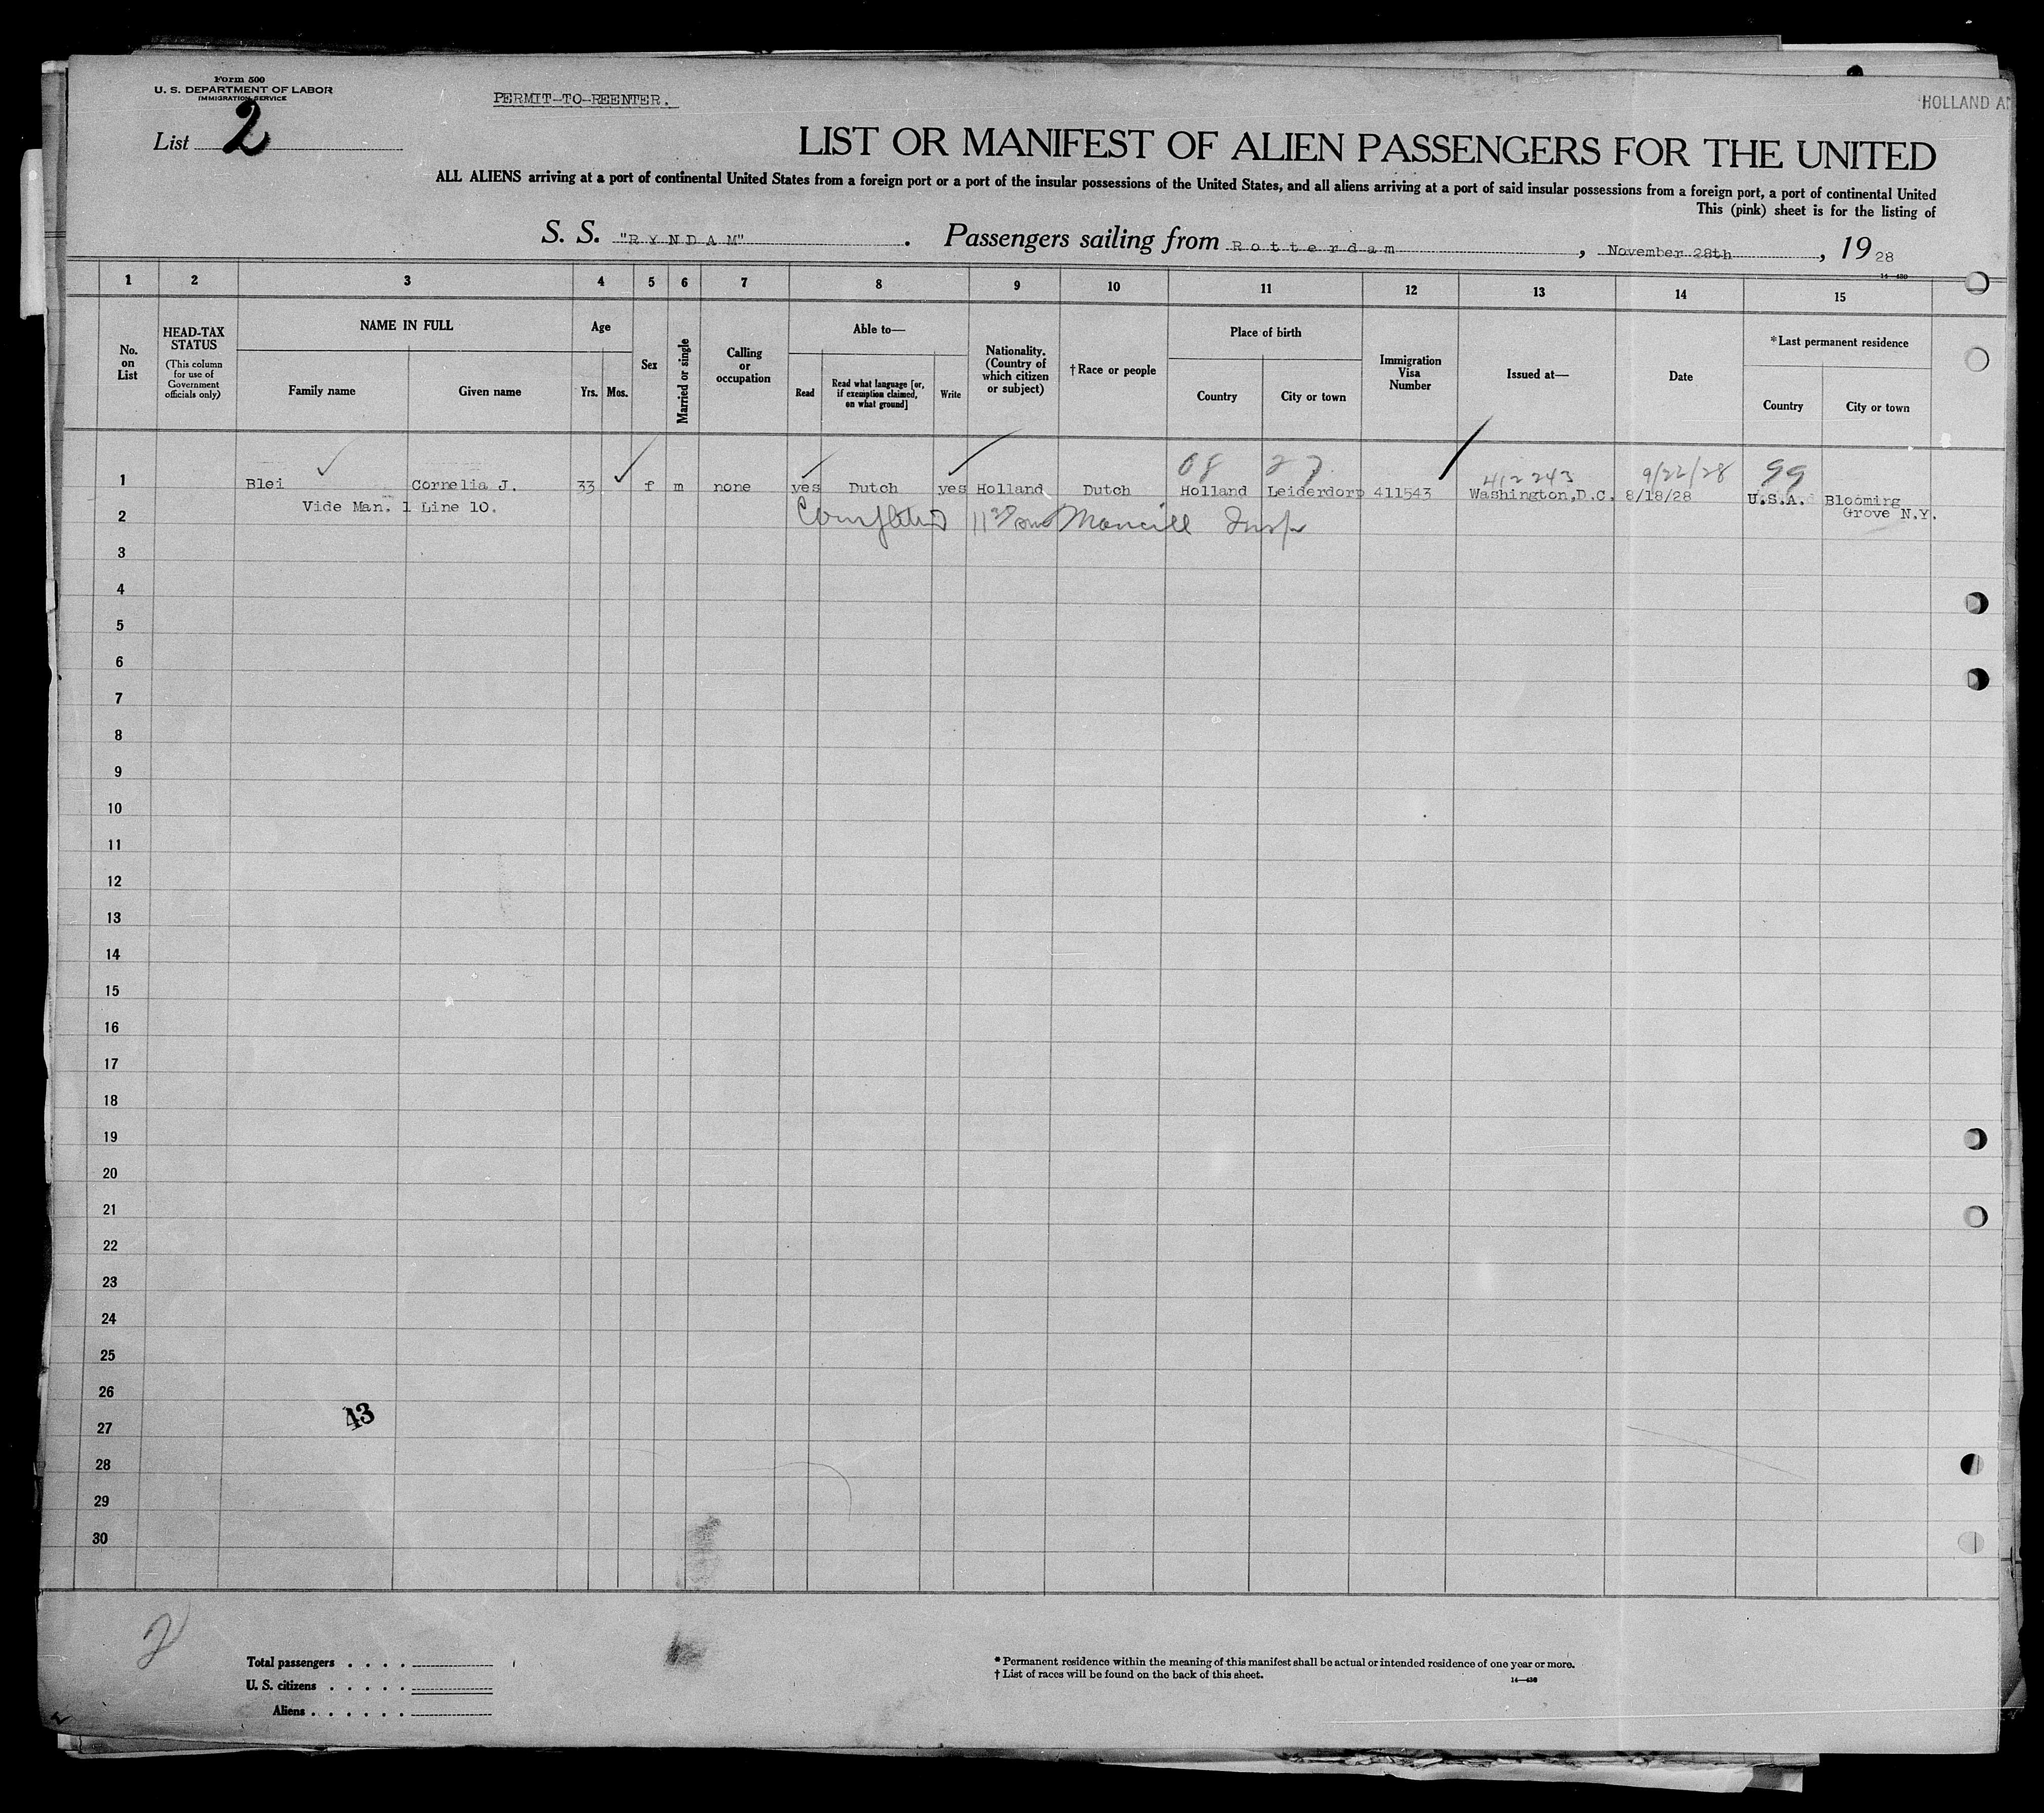 Form 500
U. S. DEPARTMENT OF LABOR
IMMIGRATION SERVICE
PERMIT-TO-REENTER.
HOLLAND A
List 2
LIST OR MANIFEST OF ALIEN PASSENGERS FOR THE UNITED
ALL ALIENS arriving at a port of continental United States from a foreign port or a port of the insular possessions of the United States, and all aliens arriving at a port of said insular possessions from a foreign port, a port of continental United
This (pink) sheet is for the listing of
S. S. "RYNDAM". Passengers sailing from Rotterdam, November 28th, 1928
14—430
1 2 3 4 5 6 7 8 9 10 11 12 13 14 15
No. on List
HEAD-TAX STATUS
(This column for use of Government officials only)
NAME IN FULL
Family name
Given name
Age
Yrs.
Mos.
Sex
Married or single
Calling or occupation
Able to—
Read
Read what language [or, if exemption claimed, on what ground]
Write
Nationality. (Country of which citizen or subject)
†Race or people
Place of birth
Country
City or town
Immigration Visa Number
Issued at—
Date
*Last permanent residence
Country
City or town
08 27 412243 9/22/28 99
1 Blei Cornelia J. 33 f m none yes Dutch yes Holland Dutch Holland Leiderdorp 411543 Washington,D.C. 8/18/28 U.S.A. Blooming
Grove N.Y.
Vide Man. 1 Line 10.
2 Insp
3
4
5
6
7
8
9
10
11
12
13
14
15
16
17
18
19
20
21
22
23
24
25
26
43
27
28
29
30
2
Total passengers . . . .
U. S. citizens . . . . .
Aliens . . . . . .
* Permanent residence within the meaning of this manifest shall be actual or intended residence of one year or more.
† List of races will be found on the back of this sheet.
14—430